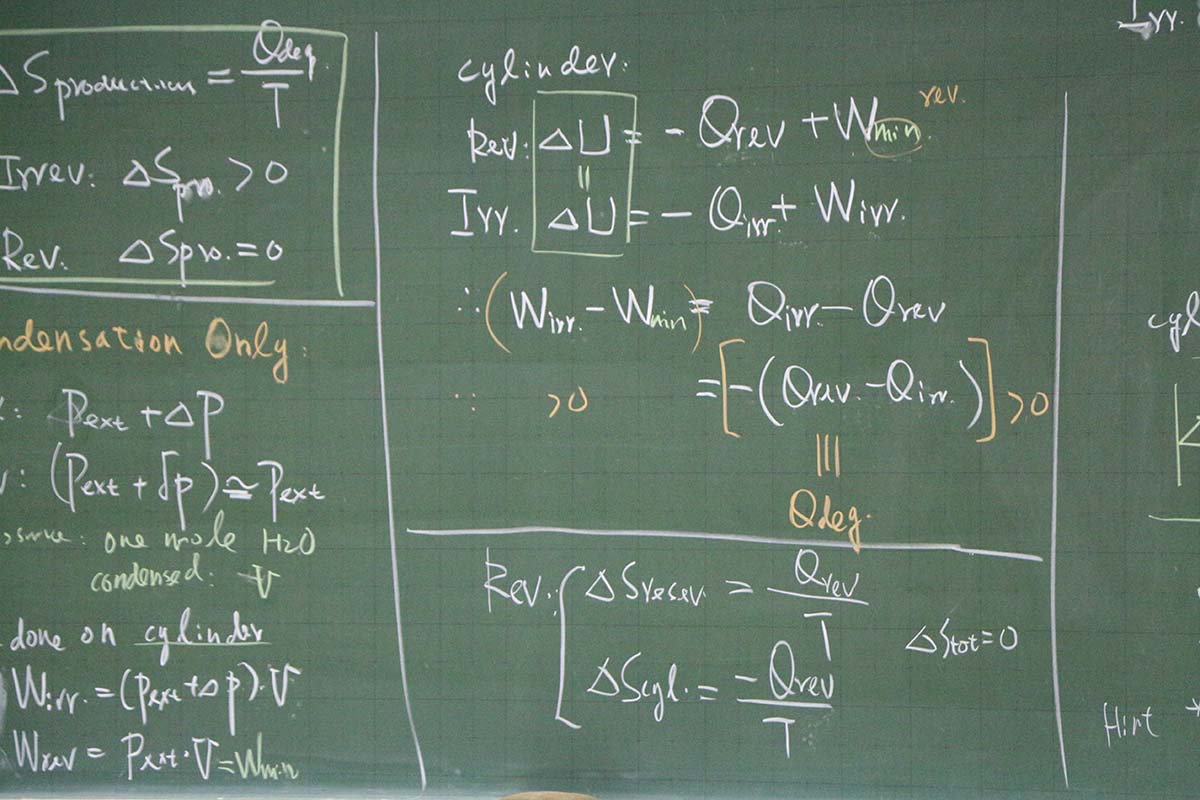 ΔSproduction = Qdeg. / T
Irrev. ΔSpro. > 0
Rev. ΔSpro. = 0
ndensation Only.
: Pext + ΔP
: (Pext + δp) ≃ Pext
one mole H2O
condensed: V
done on cylinder
Wirr. = (Pext + Δp)·V
Wrev = Pext·V = Wmin
cylinder.
Rev. ΔU = - Qrev + Wmin. rev.
||
Irr. ΔU = - Qirr. + Wirr.
∴ (Wirr. - Wmin) = Qirr. - Qrev
∵ >0 = [-(Qrev - Qirr.)] >0
|||
Qdeg.
Rev. { ΔSreser. = Qrev / T
ΔStot = 0
ΔScyl. = -Qrev / T
Irr.
cyl
Hint